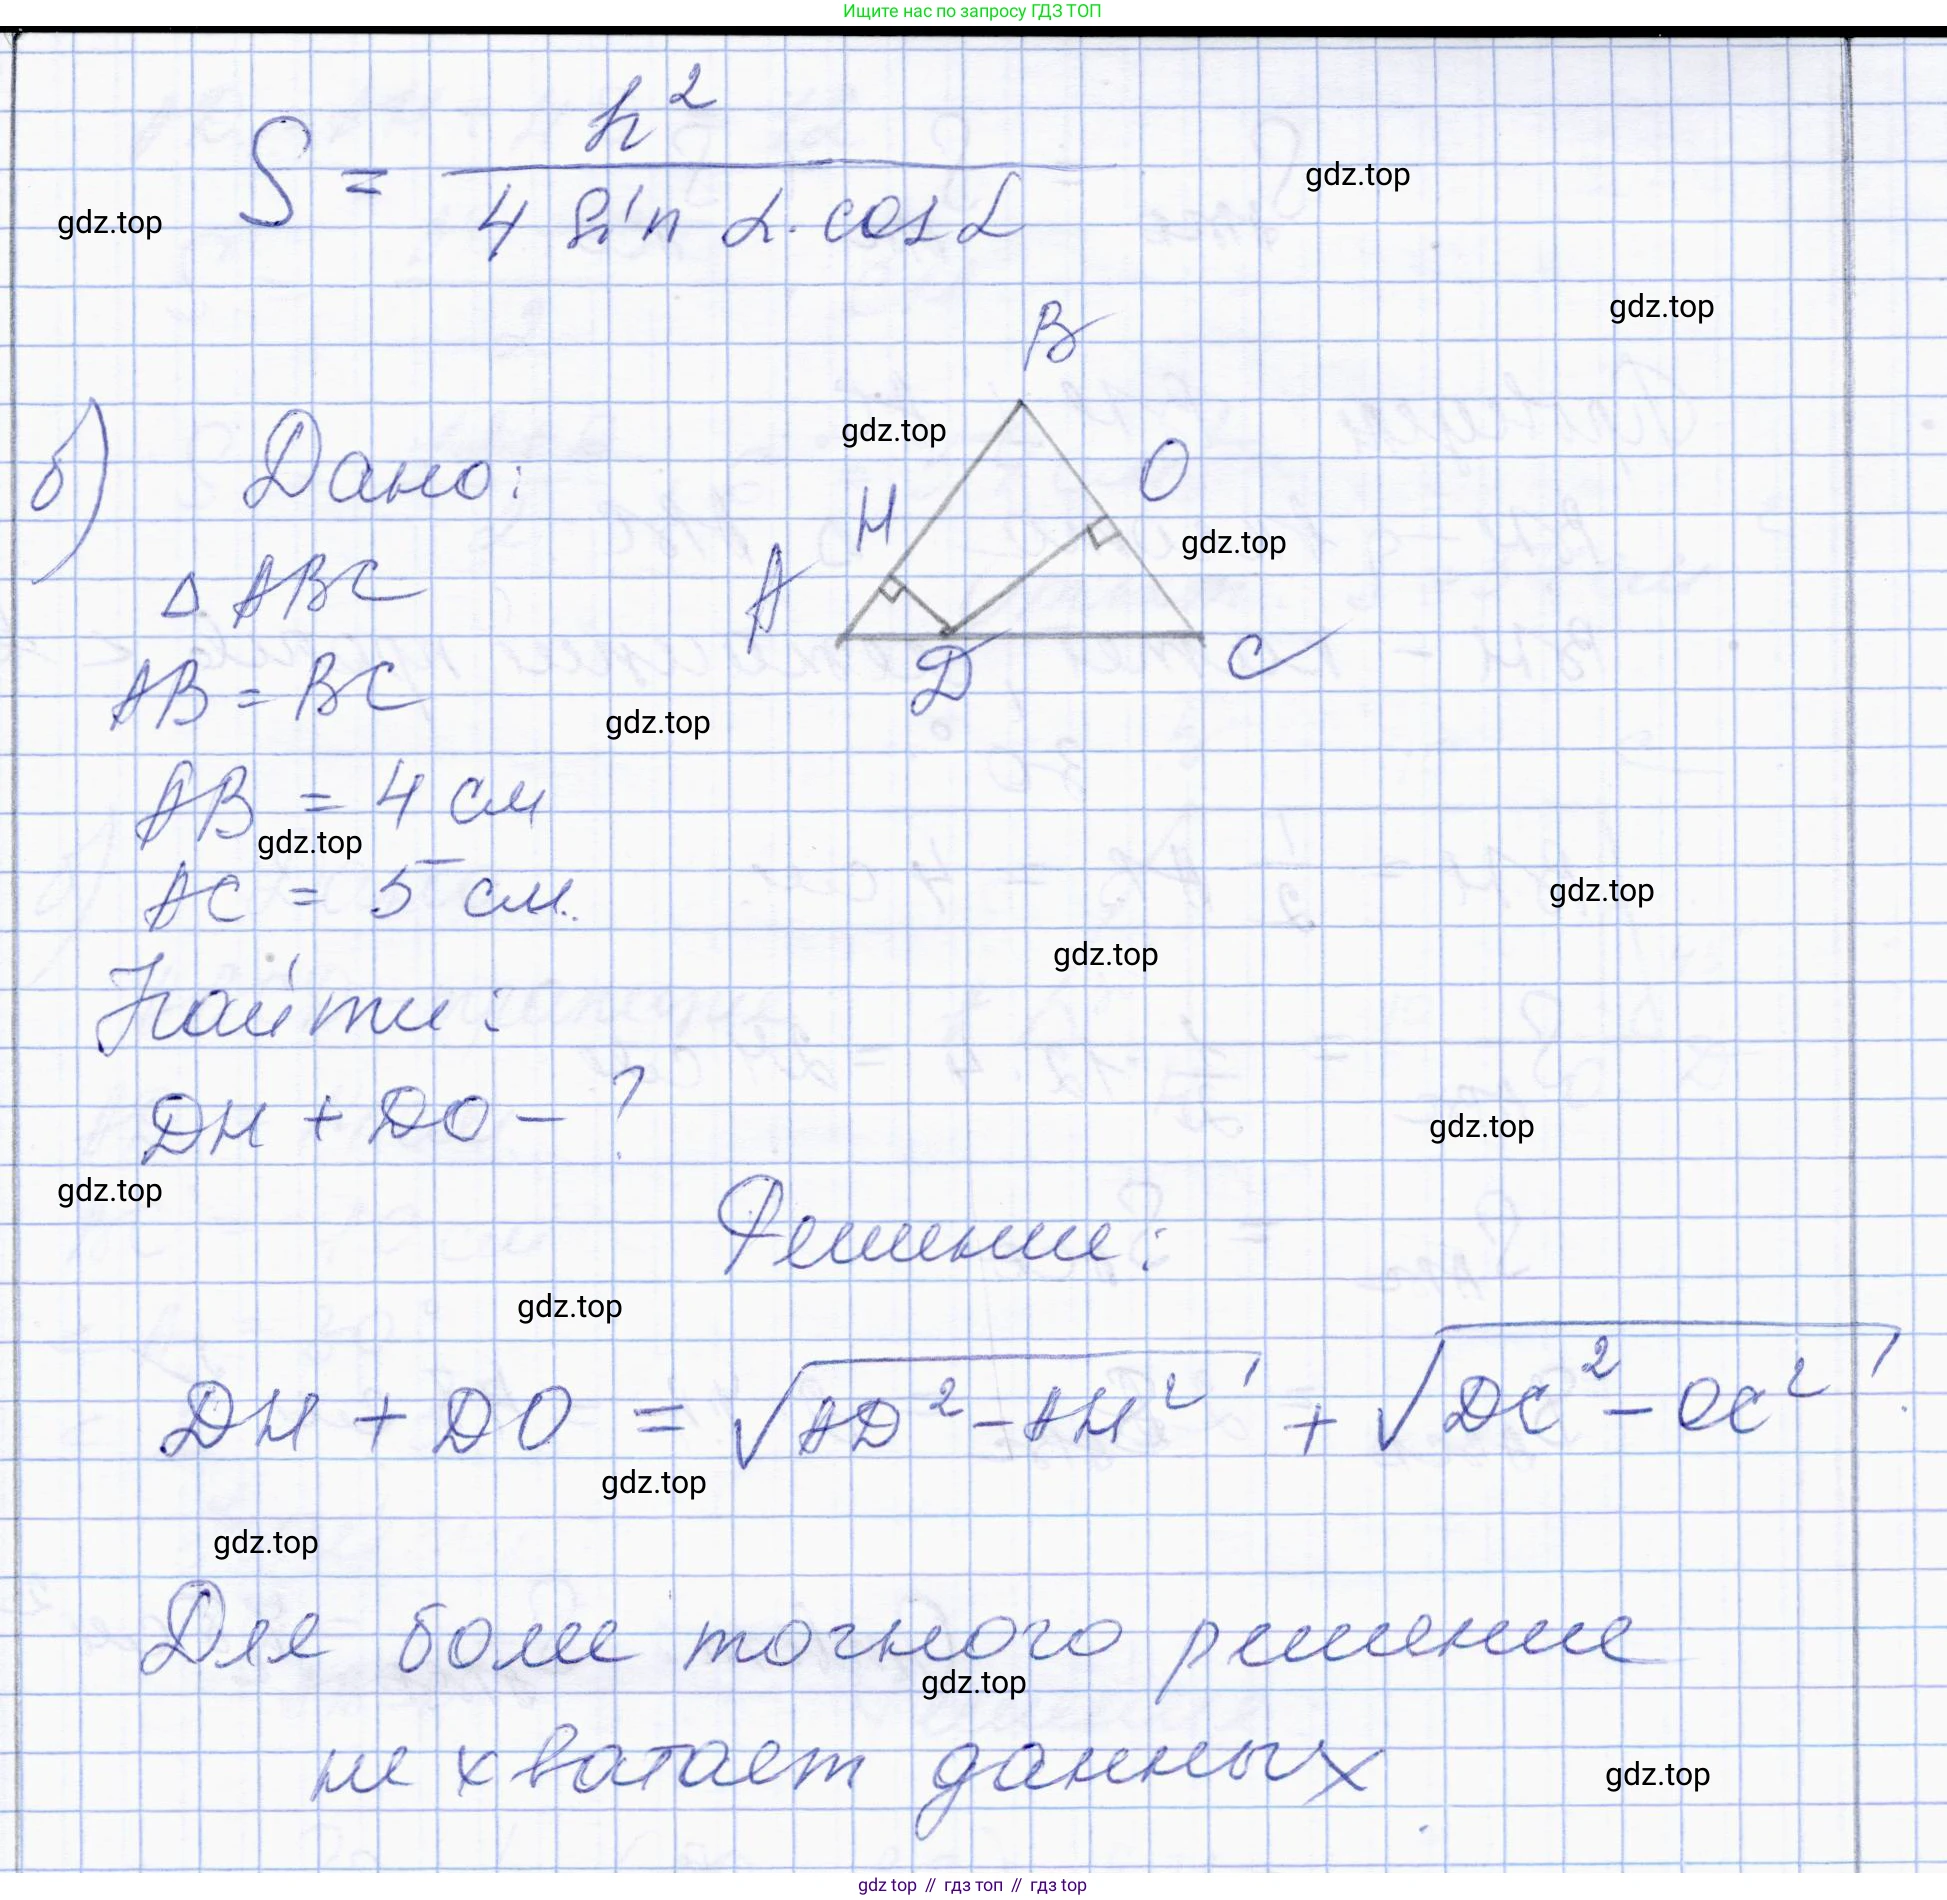 Ищите нас по запросу ГДЗ ТОП
S = h² / (4 sin α · cos α)
gdz.top
gdz.top
gdz.top
б) Дано:
B
gdz.top
O
H
gdz.top
Δ ABC
A
Д
C
AB = BC
gdz.top
AB = 4 см
gdz.top
AC = 5 см.
gdz.top
gdz.top
Найти:
ДH + ДO - ?
gdz.top
gdz.top
Решение:
gdz.top
ДH + ДO = √(AД² - AH²) + √(ДC² - OC²)
gdz.top
gdz.top
Для боле точного решение
gdz.top
не хватает данных.
gdz.top
gdz top // гдз топ // гдз top